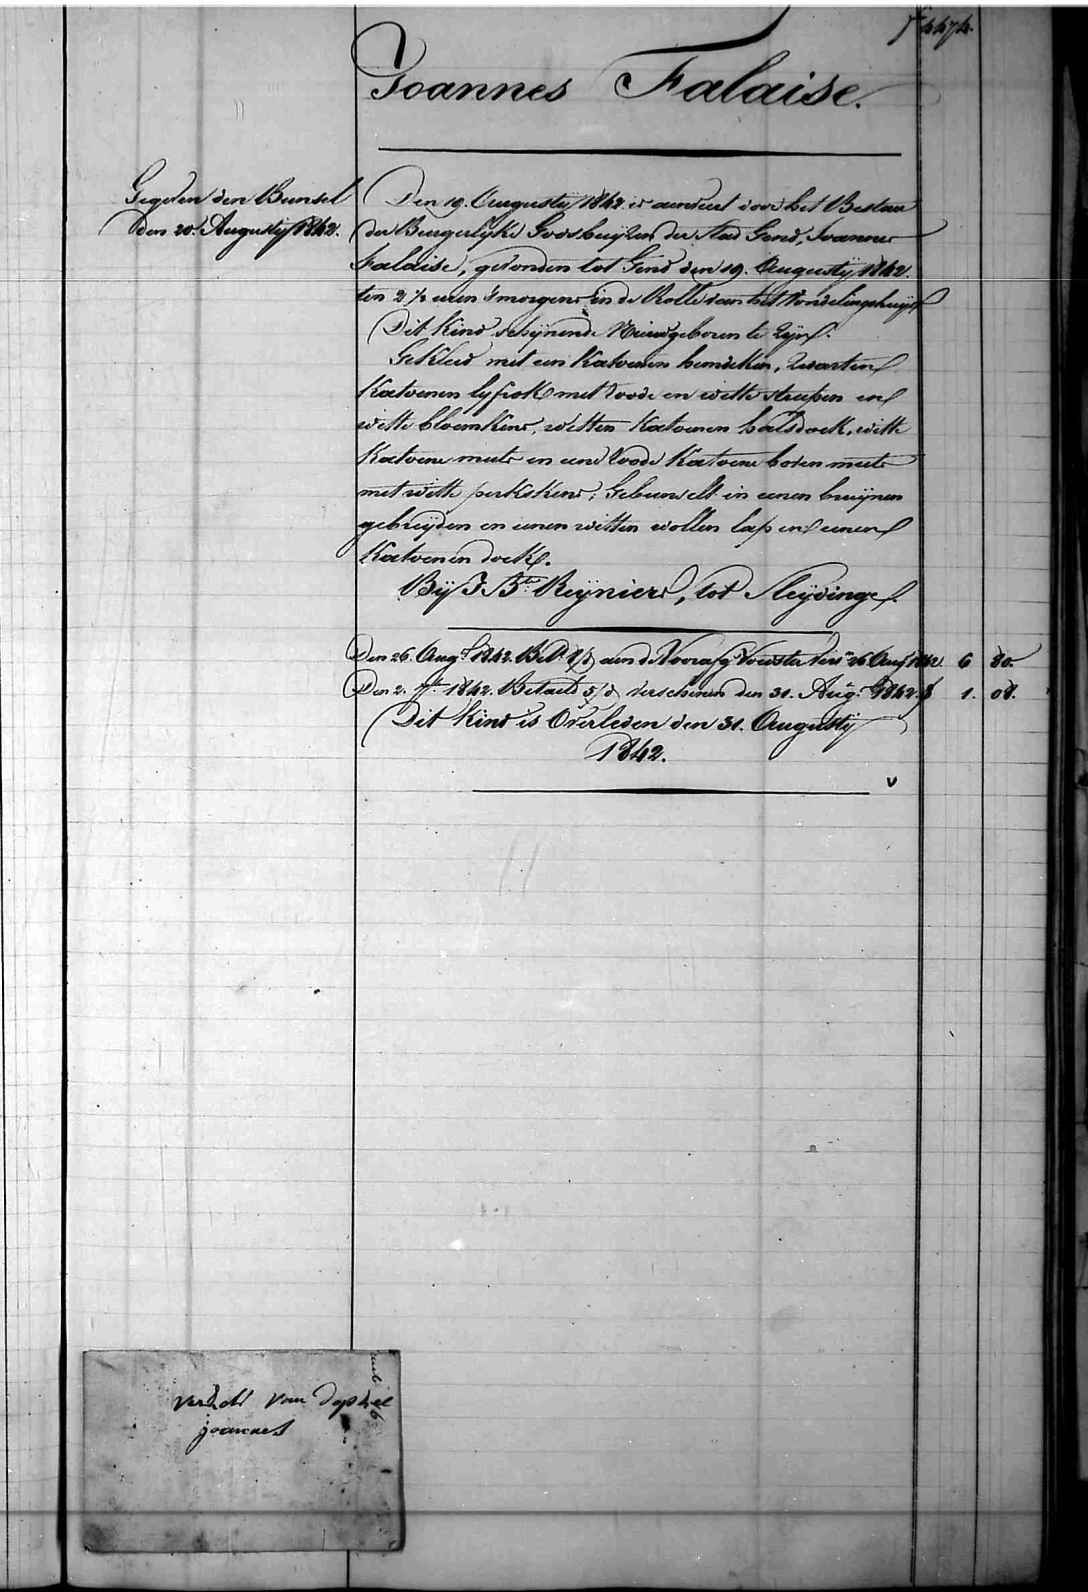 4474.
Joannes Falaise.
Gegeven den Bunsel
den 20. Augustÿ 1842.
Den 19. Augustÿ 1842. is aenveert door het Bestuer
der Burgerlÿke Godshuÿzen der Stad Gend, Joannes
Falaise, gevonden tot Gend den 19. Augustÿ 1842.
ten 2 ½ uren 's morgens in de Rolle van het Vondelingshuÿs
Dit Kind schÿnende Nieuwgeboren te zÿn.
Gekleed met een Katoenen hemdeken, zwarten
Katoenen lÿfrok met roode en witte streepen en
witte bloemkens, witten Katoenen halsdoek, witte
Katoene muts en eene roode Katoene boven muts
met witte perkskens; Gebunselt in eenen bruÿnen
gebreÿden en eenen witten wollen lap en eenen
Katoenen doek.
Bÿ J. Bte Reÿniers, tot Sleÿdinge.
Den 26. Augt 1842. Betd aen de Voorsta Vers 26 Aug 1842 6 80.
Den 2. 7br 1842. Betaeld 5/d verschenen den 31. Aug. 1842. f 1. 08.
Dit kind is Overleden den 31. Augustÿ
1842.
joannes